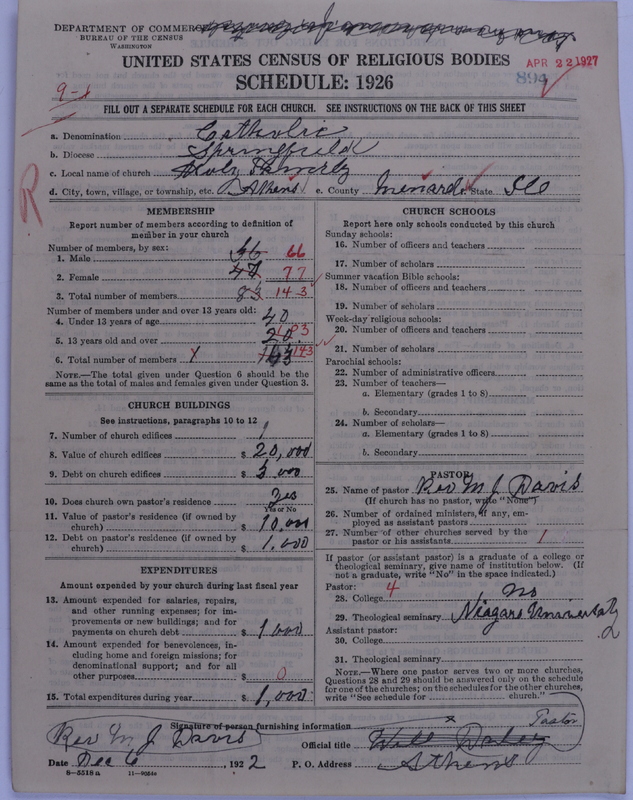 DEPARTMENT OF COMMERCE
BUREAU OF THE CENSUS
WASHINGTON
UNITED STATES CENSUS OF RELIGIOUS BODIES
APR 22 1927
SCHEDULE: 1926
894
9-1
FILL OUT A SEPARATE SCHEDULE FOR EACH CHURCH. SEE INSTRUCTIONS ON THE BACK OF THIS SHEET
a. Denomination Catholic
b. Diocese Springfield
c. Local name of church Holy Family
d. City, town, village, or township, etc. Athens e. County Menard State Ill
R
MEMBERSHIP
Report number of members according to definition of
member in your church
Number of members, by sex:
1. Male 36 66
2. Female 47 77
3. Total number of members 83 143
Number of members under and over 13 years old:
4. Under 13 years of age 40
5. 13 years old and over 20 103
6. Total number of members 143 143
NOTE.—The total given under Question 6 should be the
same as the total of males and females given under Question 3.
CHURCH BUILDINGS
See instructions, paragraphs 10 to 12
7. Number of church edifices 1
8. Value of church edifices $ 20,000
9. Debt on church edifices $ 3,000
10. Does church own pastor's residence Yes
Yes or No
11. Value of pastor's residence (if owned by
church) $ 10,000
12. Debt on pastor's residence (if owned by
church) $ 1,000
EXPENDITURES
Amount expended by your church during last fiscal year
13. Amount expended for salaries, repairs,
and other running expenses; for im-
provements or new buildings; and for
payments on church debt $ 1,000
14. Amount expended for benevolences, in-
cluding home and foreign missions; for
denominational support; and for all
other purposes $ 0
15. Total expenditures during year $ 1,000
CHURCH SCHOOLS
Report here only schools conducted by this church
Sunday schools:
16. Number of officers and teachers
17. Number of scholars
Summer vacation Bible schools:
18. Number of officers and teachers
19. Number of scholars
Week-day religious schools:
20. Number of officers and teachers
21. Number of scholars
Parochial schools:
22. Number of administrative officers
23. Number of teachers—
a. Elementary (grades 1 to 8)
b. Secondary
24. Number of scholars—
a. Elementary (grades 1 to 8)
b. Secondary
PASTOR
25. Name of pastor Rev M J Davis
(If church has no pastor, write "None")
26. Number of ordained ministers, if any, em-
ployed as assistant pastors
27. Number of other churches served by the
pastor or his assistants 1
If pastor (or assistant pastor) is a graduate of a college or
theological seminary, give name of institution below. (If
not a graduate, write "No" in the space indicated.)
Pastor: 4
28. College no
29. Theological seminary Niagara University
2
Assistant pastor:
30. College
31. Theological seminary
NOTE.—Where one pastor serves two or more churches,
Questions 28 and 29 should be answered only on the schedule
for one of the churches; on the schedules for the other churches,
write "See schedule for church."
Signature of person furnishing information x Pastor
Rev M J Davis Official title Will Daley
Date Dec 6, 1922 P. O. Address Athens
8-5518a 11-9054a